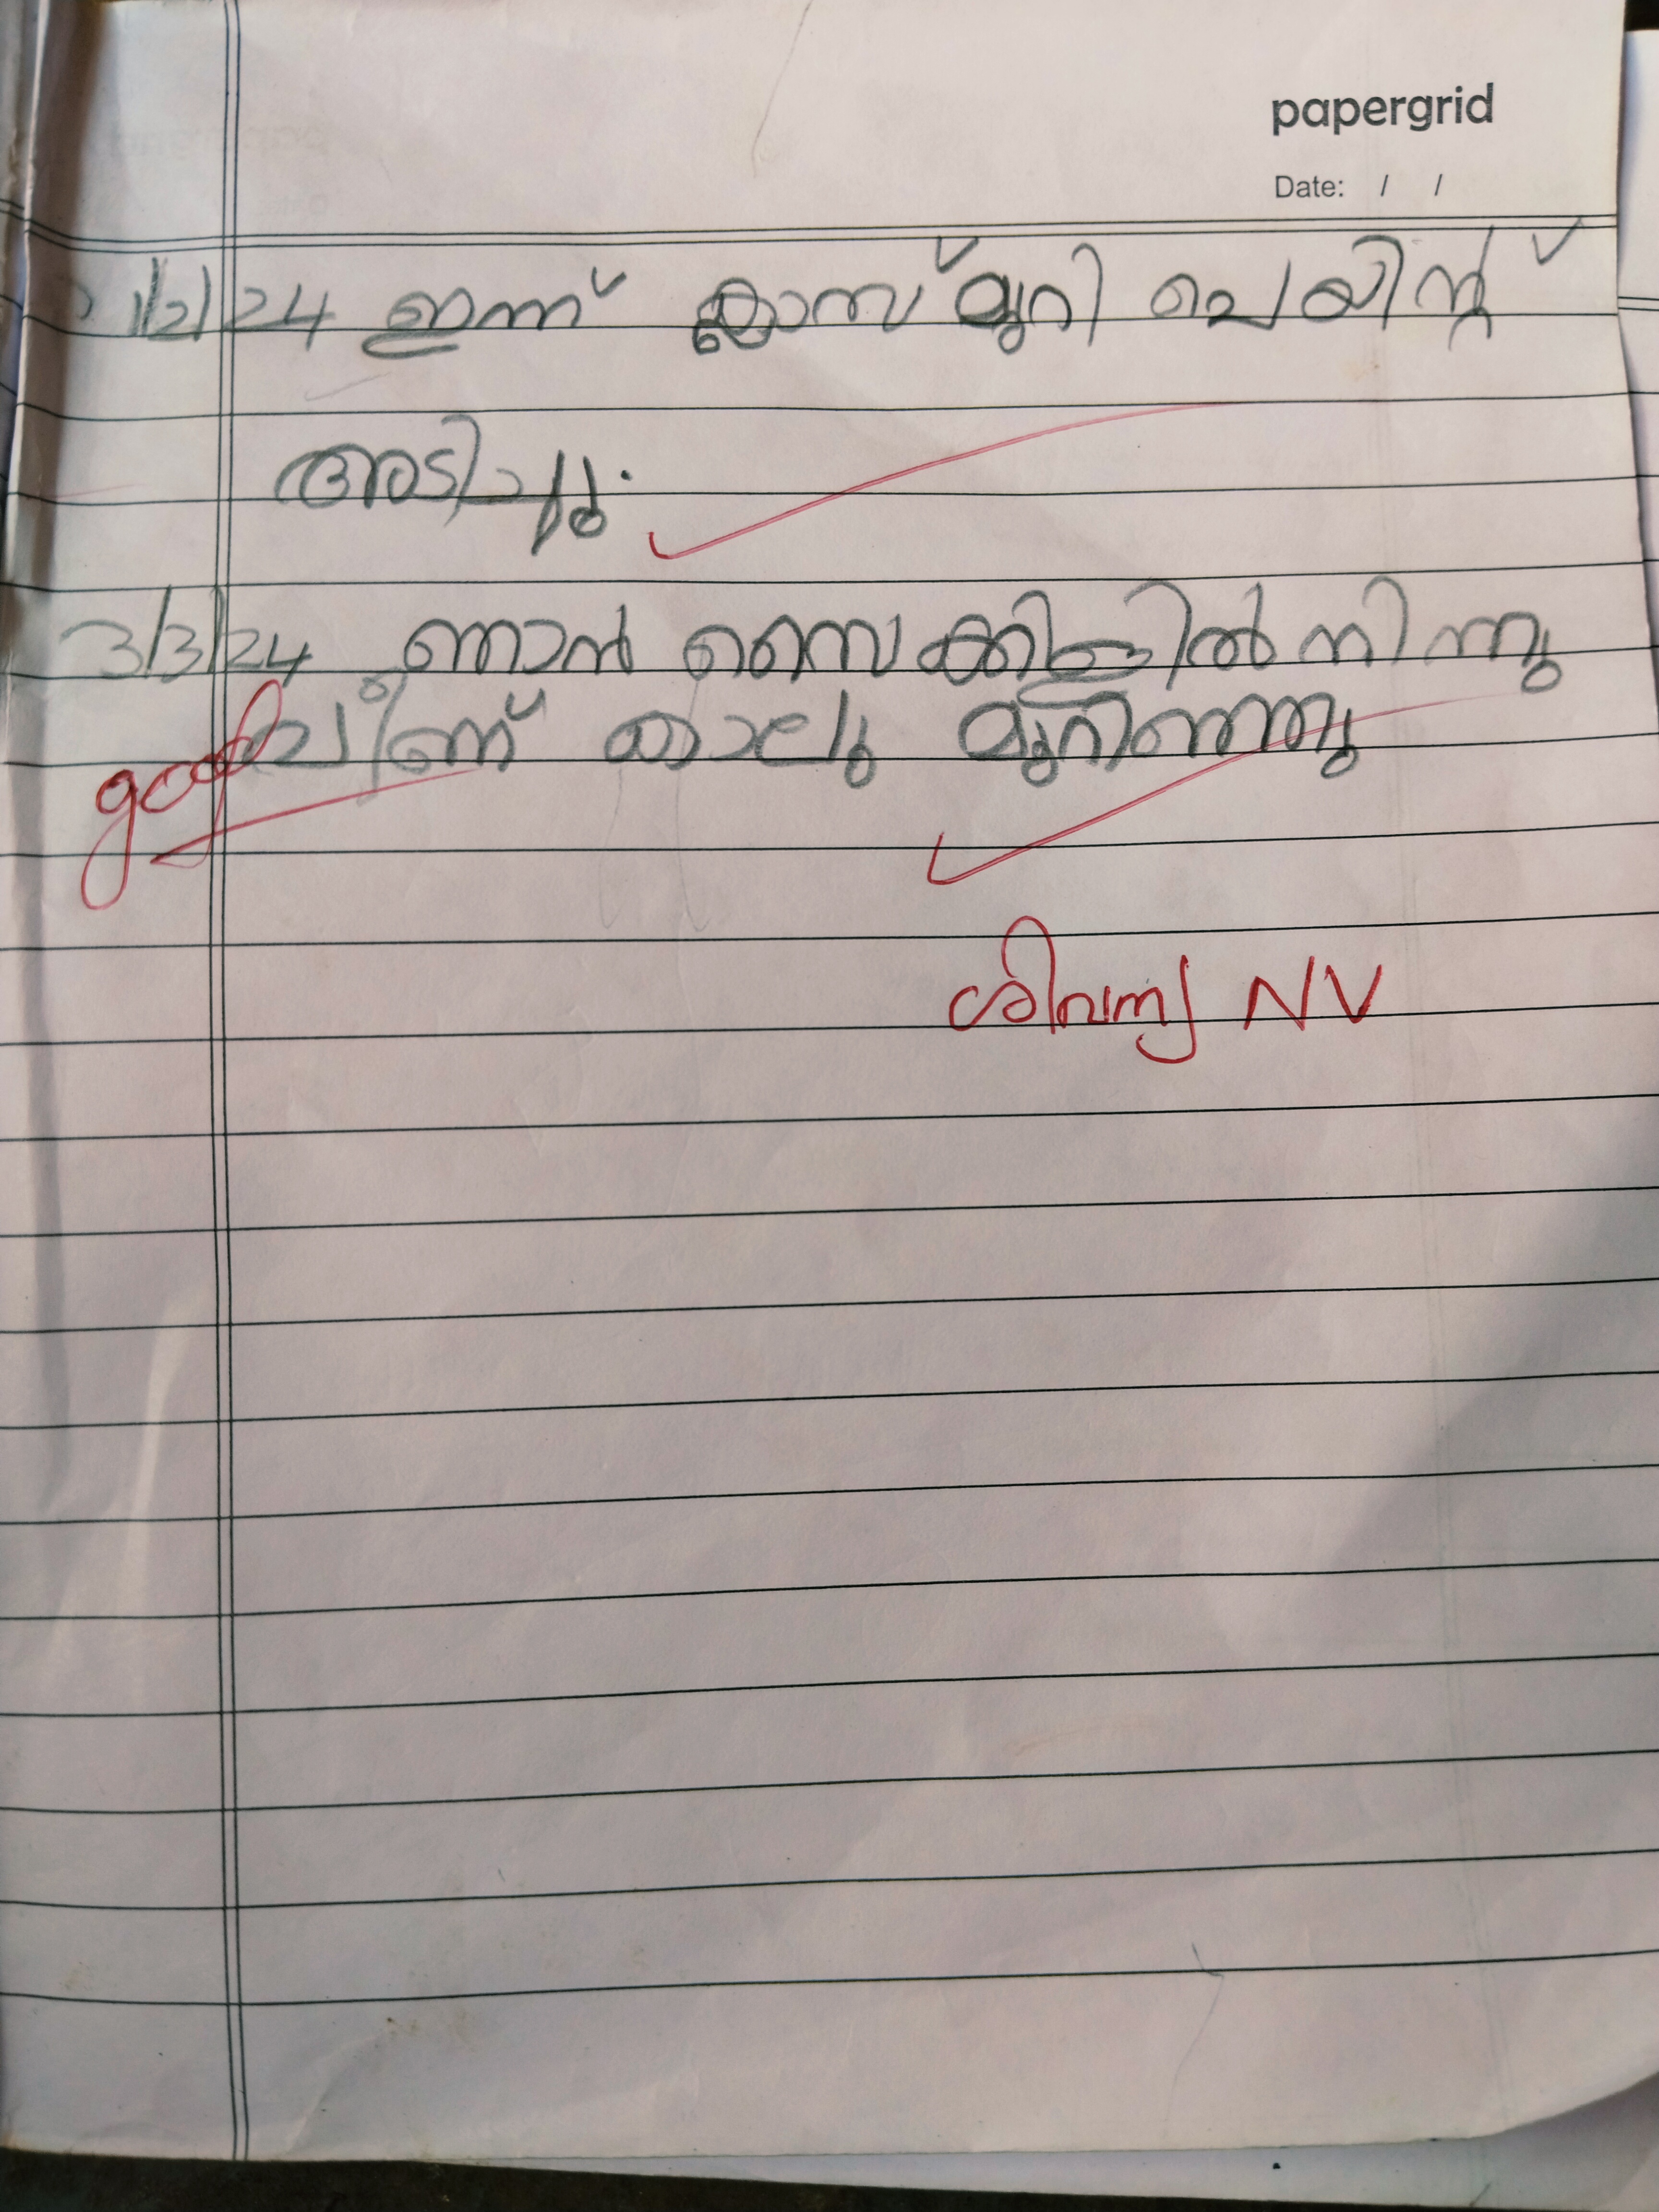 papergrid
Date: / /
1/2/24 ഇന്ന് ക്ലാസ് മുറി പെയിന്റ്
അടിച്ചു.
3/3/24 ഞാൻ സൈക്കിളിൽ നിന്നു
വീണ് കാലു മുറിഞ്ഞു
good
ശിവന്യ NV